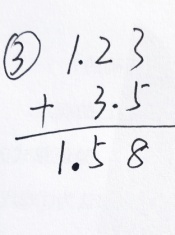 ③ 1.23
+ 3.5
1.58